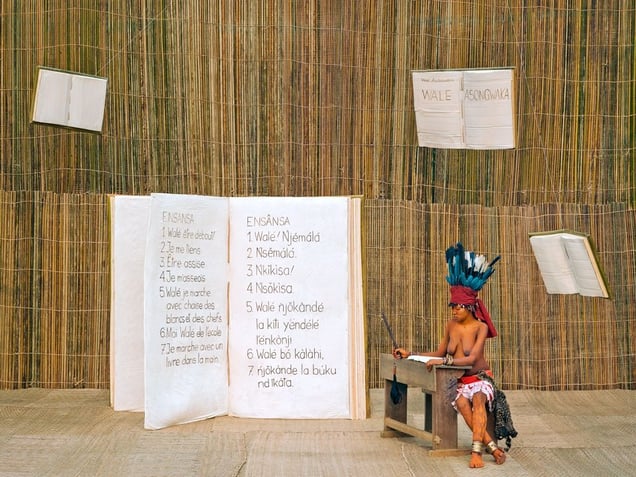 WALE ASONGWAKA
ENSANSA
1 Walé être debout!
2 Je me tiens
3. Être assise
4 Je m'asseois
5 Walé je marche
avec chaise des
blancs et des chefs
6. Moi Walé de l'école
7. Je marche avec un
livre dans la main.
ENSÂNSA
1. Walé! Njémálá
2. Nsémálá.
3. Nkíkisa!
4. Nsókisa.
5. Walé njǒkàndé
la kiti yèndélé
l'énkònji
6 Walé bó kàlàhi,
7. njǒkánde la búku
nd'íkáta.